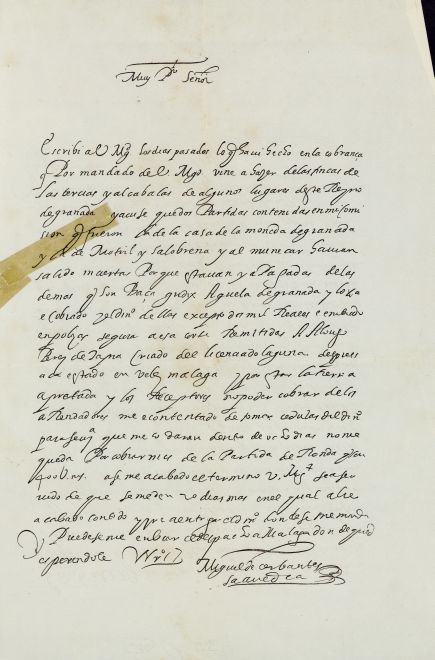 Muy Pso Señor
Escribi a V. Mgd los dias pasados lo q havia hecho en la cobranca
q por mandado de V. Mgd vine a hazer de las fincas de
las tercias y alcabalas de algunos lugares deste Reyno
de granada y acuse que dos Partidas contenidas en mi comi
sion q fueron la de la casa de la moneda de granada
y la de Motril y Salobrena y al muñecar havian
salido inciertas Porque estavan ya Pagadas de las
demas q son Baça guadix Aguela de granada y loxa
e cobrado el din de llas excepto mil Reales e embiado
en polizas seguras a esa corte Remitidas A
Perez de Tapia criado del licenciado laguna despues
aca e estado en velez malaga y por estar la tierra
apretada y los Receptores no poder cobrar de los
Arrendadores me e contentado de tomar cedulas del din
para sevª que me lo daran dentro de ocho dias no me
queda Por cobrar mas de la Partida de Ronda q son
400 U. as. a se me acabado el termino V. Mgd sea ser
vido de que se me den veo dias mas en el qual abre
acabado con todo y pre entregue el din donde se me manda
y Puedeseme enbiar el despacho a Malaga don de quedo
esperandole
Miguel de cerbantes
saavedra